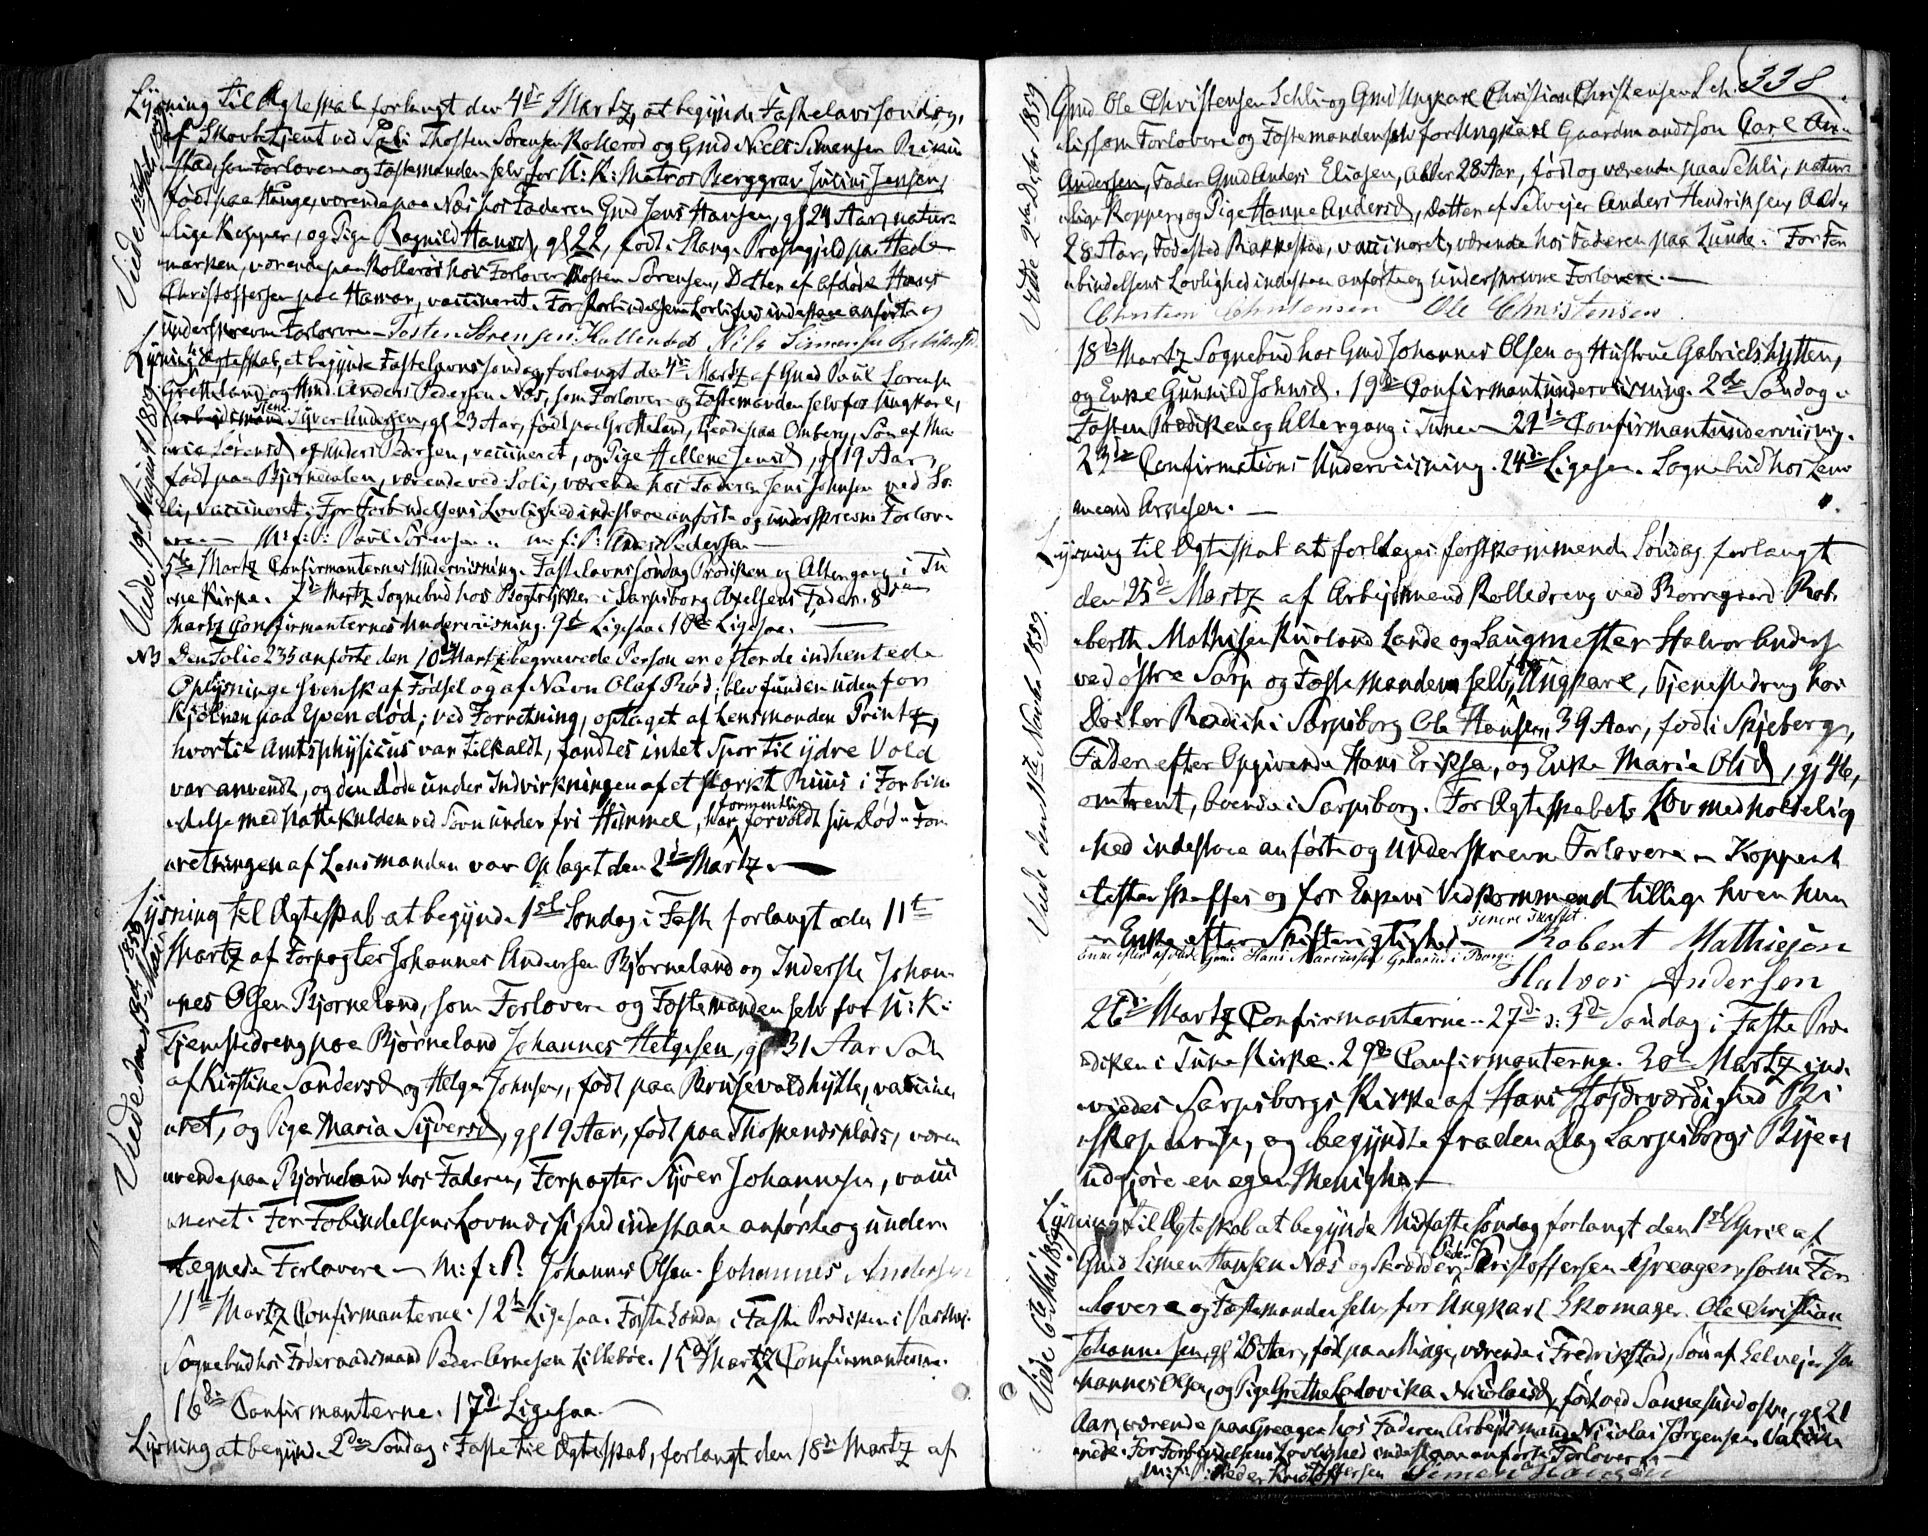 Lysning til Ægteskab forlangt den 4de Martz, at begynde Fastelavnssøndag,
af Skovbetjent ved Soli Thosten Sørensen Kollerød og Gmd Niels Simensen
som Forlovere og Fæstemanden selv for U: K: Matros Berggrav Julius Jensen,
født paa Hauge, værende paa Næs hos Faderen Gmd Jens Hansen, gl 24 Aar, natur-
lige Kopper, og Pige Ragnild Hansd, gl 22, født i Stange Præstegjeld paa Hede-
marken, værende paa Kollerød hos Forlover Thosten Sørensen, Datter af afdøde Hans
Christoffersen paa Hamar, vaccineret. For Forbindelsens Lovlighed indestaae anførte og
underskrevne Forlovere Tosten Sørensen Kollerød Nils Simensen
Viede 1859
Lysning til Ægteskab, at begynde Fastelavnssøndag, forlangt den 4de Martz af Gmd Paul Sørensen
Gretteland og Hmd Anders Pedersen Næs, som Forlovere og Fæstemanden selv for Ungkarl,
Syver Andersen, gl 23 Aar, født paa Gretteland, boende paa Omberg, Søn af Ma-
rie Sørensd og Anders Pedersen, vaccineret, og Pige Hellene Jensd, gl 19 Aar,
født paa Bjørnedalen, værende ved Soli, værende hos Faderen Jens Johnsen ved So-
li, vaccineret. For Forbindelsens Lovlighed indestaae anførte og underskrevne Forlov-
ere M: f: P: Paul Sørensen m: f: P: Anders Pedersen
Viede 19de 1859
5te Martz Confirmanternes Underviisning. Fastelavnssøndag Prædiken og Altergang i Tu-
ne Kirke. 7de Martz Sognebud hos Bogtrykker i Sarpsborg Axelsens Fader. 8de
Martz Confirmanternes Underviisning. 9de Ligesaa 10de Ligesaa.
N3 Den Folie 235 anførte den 10de Martz begravede Person er efter de indhentede
Oplysninger svensk af Fødsel og af Navn Olaf Brød; blev funden udenfor
Kjølnen paa Yven død; ved Forretning, optaget af Lensmanden Printz,
hvortil Amtsphysicus var tilkaldt, fandtes intet Spor til ydre Vold
var anvendt, og den Døde under Indvirkningen af et stærkt Ruus i Forbin-
delse med Nattekulden ved Søvn under fri Himmel, har formentlig forvoldt sin Død. For-
retningen af Lensmanden var optaget den 2de Martz.
Lysning til Ægteskab at begynde 1ste Søndag i Faste forlangt den 11te
Martz af Forpagter Johannes Andersen Bjørneland og Inderste Johan-
nes Olsen Bjørneland, som Forlovere og Fæstemanden selv for U: K:
Tjenestedreng paa Bjørneland Johannes Helgesen, gl 31 Aar Søn
af Kirstine Sandersd og Helge Johnsen, født paa Brusevoldhytte, vaccine-
ret, og Pige Maria Syversd, gl 19 Aar, født paa Thoskenæsplads, være-
nde paa Bjørneland hos Faderen, Forpagter Syver Johannesen, vacci-
neret. For Fobindelsens Lovmæssighed indestaae anførte og under-
tegnede Forlovere M: f: P: Johannes Olsen. Johannes Andersen
Viede den 1859
11te Martz Confirmanterne. 12te Ligesaa. Første Søndag i Faste Prædiken i
Sognebud hos Føderaadsmand Peder Arnesen Lillebøe. 15de Martz Confirmanterne.
16de Confirmanterne. 17de Ligesaa.
Lysning at begynde 2den Søndag i Faste til Ægteskab, forlangt den 18de Martz af
338
Gmd Ole Christensen Schli og Gmd Ungkarl Christian Christensen Sch-
li som Forlovere og Fæstemanden selv for Ungkarl Gaardmandssøn Carl An-
Andersen, Fader Gmd Anders Eliasen, Alder 28 Aar, født og værende paa Schli, natur-
lige Kopper, og Pige Hanne Andersd, Datter af Selveier Anders Hendriksen, Alder
28 Aar, Fødested Rakkestad, vaccineret, værende hos Faderen paa Lunde. For For-
bindelsens Lovlighed indestaae anførte og underskrevne Forlovere.
Christian Christensen Ole Christensen
Viede 2den 1859
18de Martz Sognebud hos Gmd Johannes Olsen og Hustrue Gabrielshytten,
og Enke Gunnild Johnsd. 19de Confirmantunderviisning. 2den Søndag i
Fasten Prædiken og Altergang i Tune. 21de Confirmantunderviisning.
23de Confirmations Underviisning. 24de Ligesaa. Sognebud hos
Arnesen.
Lysning til Ægteskab at foretages førstkommende Søndag forlangt
den 25de Martz af Arbejdsmand Kolledreng ved Borregaard Rob-
berth Mathisen Kurland Lande og Saugmester Halvor Anders
ved østre Sarp og Fæstemanden selv, Ungkarl, Tjenestedreng hos
Docter Rodich i Sarpsborg Ole Hansen, 39 Aar, født i Skjeberg,
Faderen efter Opgivende Hans Eriksen, og Enke Maria Olsd, gl 46,
omtrent, boende i Sarpsborg. For Ægteskabets Lovmedholdelig-
hed indestaae anførte og underskrevne Forlovere. Koppeat-
tester skaffes og for Enkens Vedkommende tillige hvem hun
er Enke efter Skifterigtighed senere skaffet. Robert Mathiesen
Enke efter afdøde Gmd Hans Marcussen i Borge.
Halvor Andersen
Viede den 11te Novbr 1859.
26de Martz Confirmanterne. 27de d: 3de Søndag i Faste Præ-
diken i Tune Kirke. 29de Confirmanterne. 30te Martz ind-
viedes Sarpsborgs Kirke af Hans Højærværdighed Bi-
skop Arup, og begyndte fra den Dag Sarpsborgs Bye at
udgjøre en egen Menighed.
Lysning til Ægteskab at begynde Midfastesøndag forlangt den 1ste April af
Gmd Simen Hansen Næs og Skrædder Peder Kristoffersen Greager, som For-
lovere og Fæstemanden selv, for Ungkarl Skomager Ole Christian
Johannesen, gl 26 Aar, født paa Hauge, værende i Fredrikstad, Søn af Selvejer Jo-
hannes Olsen, og Pige Grethe Lodovika Nicolaisd, født ved Sannesund østre, gl 21
Aar, værende paa Greager hos Faderen Arbejdsmand Nicolai Jørgensen,
For Forbindelsens Lovlighed indestaae anførte Forlovere
M: f: P: Peder Kristoffersen Simen Hansen
Viede 6te Mai 1859